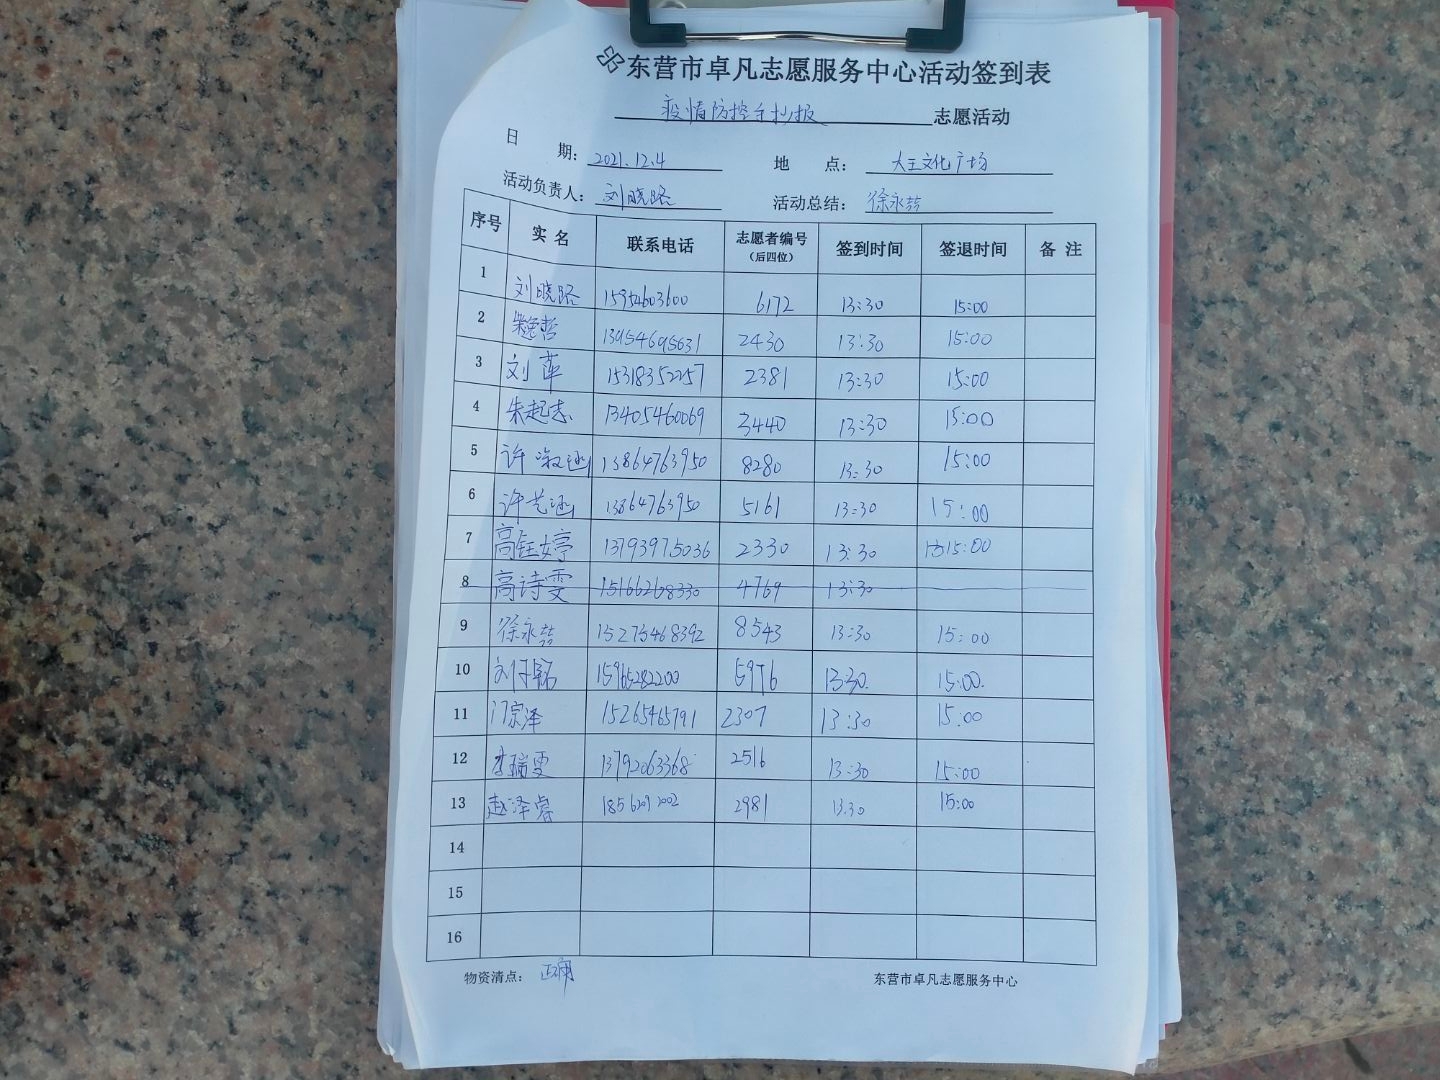 东营市卓凡志愿服务中心活动签到表
疫情防控手抄报 志愿活动
日 期： 2021.12.4 地 点： 大王文化广场
活动负责人： 刘晓路 活动总结： 徐永喆
序号 实名 联系电话 志愿者编号（后四位） 签到时间 签退时间 备注
1 刘晓路 15954603600 6172 13:30 15:00
2 13954695631 2430 13:30 15:00
3 刘苹 15318352257 2381 13:30 15:00
4 朱起志 13405460069 3440 13:30 15:00
5 许淑涵 13864763950 8280 13:30 15:00
6 许艺涵 13864763950 5161 13:30 15:00
7 高钰婷 13793975036 2330 13:30 15:00
8 高诗雯 15166268330 4769 13:30
9 徐永喆 15275468392 8543 13:30 15:00
10 15965282200 5976 13:30. 15:00.
11 门宗泽 15265465791 2307 13:30 15:00
12 李瑞雯 13792063368 2516 13:30 15:00
13 赵泽睿 18562092002 2981 13:30 15:00
14
15
16
物资清点： 东营市卓凡志愿服务中心